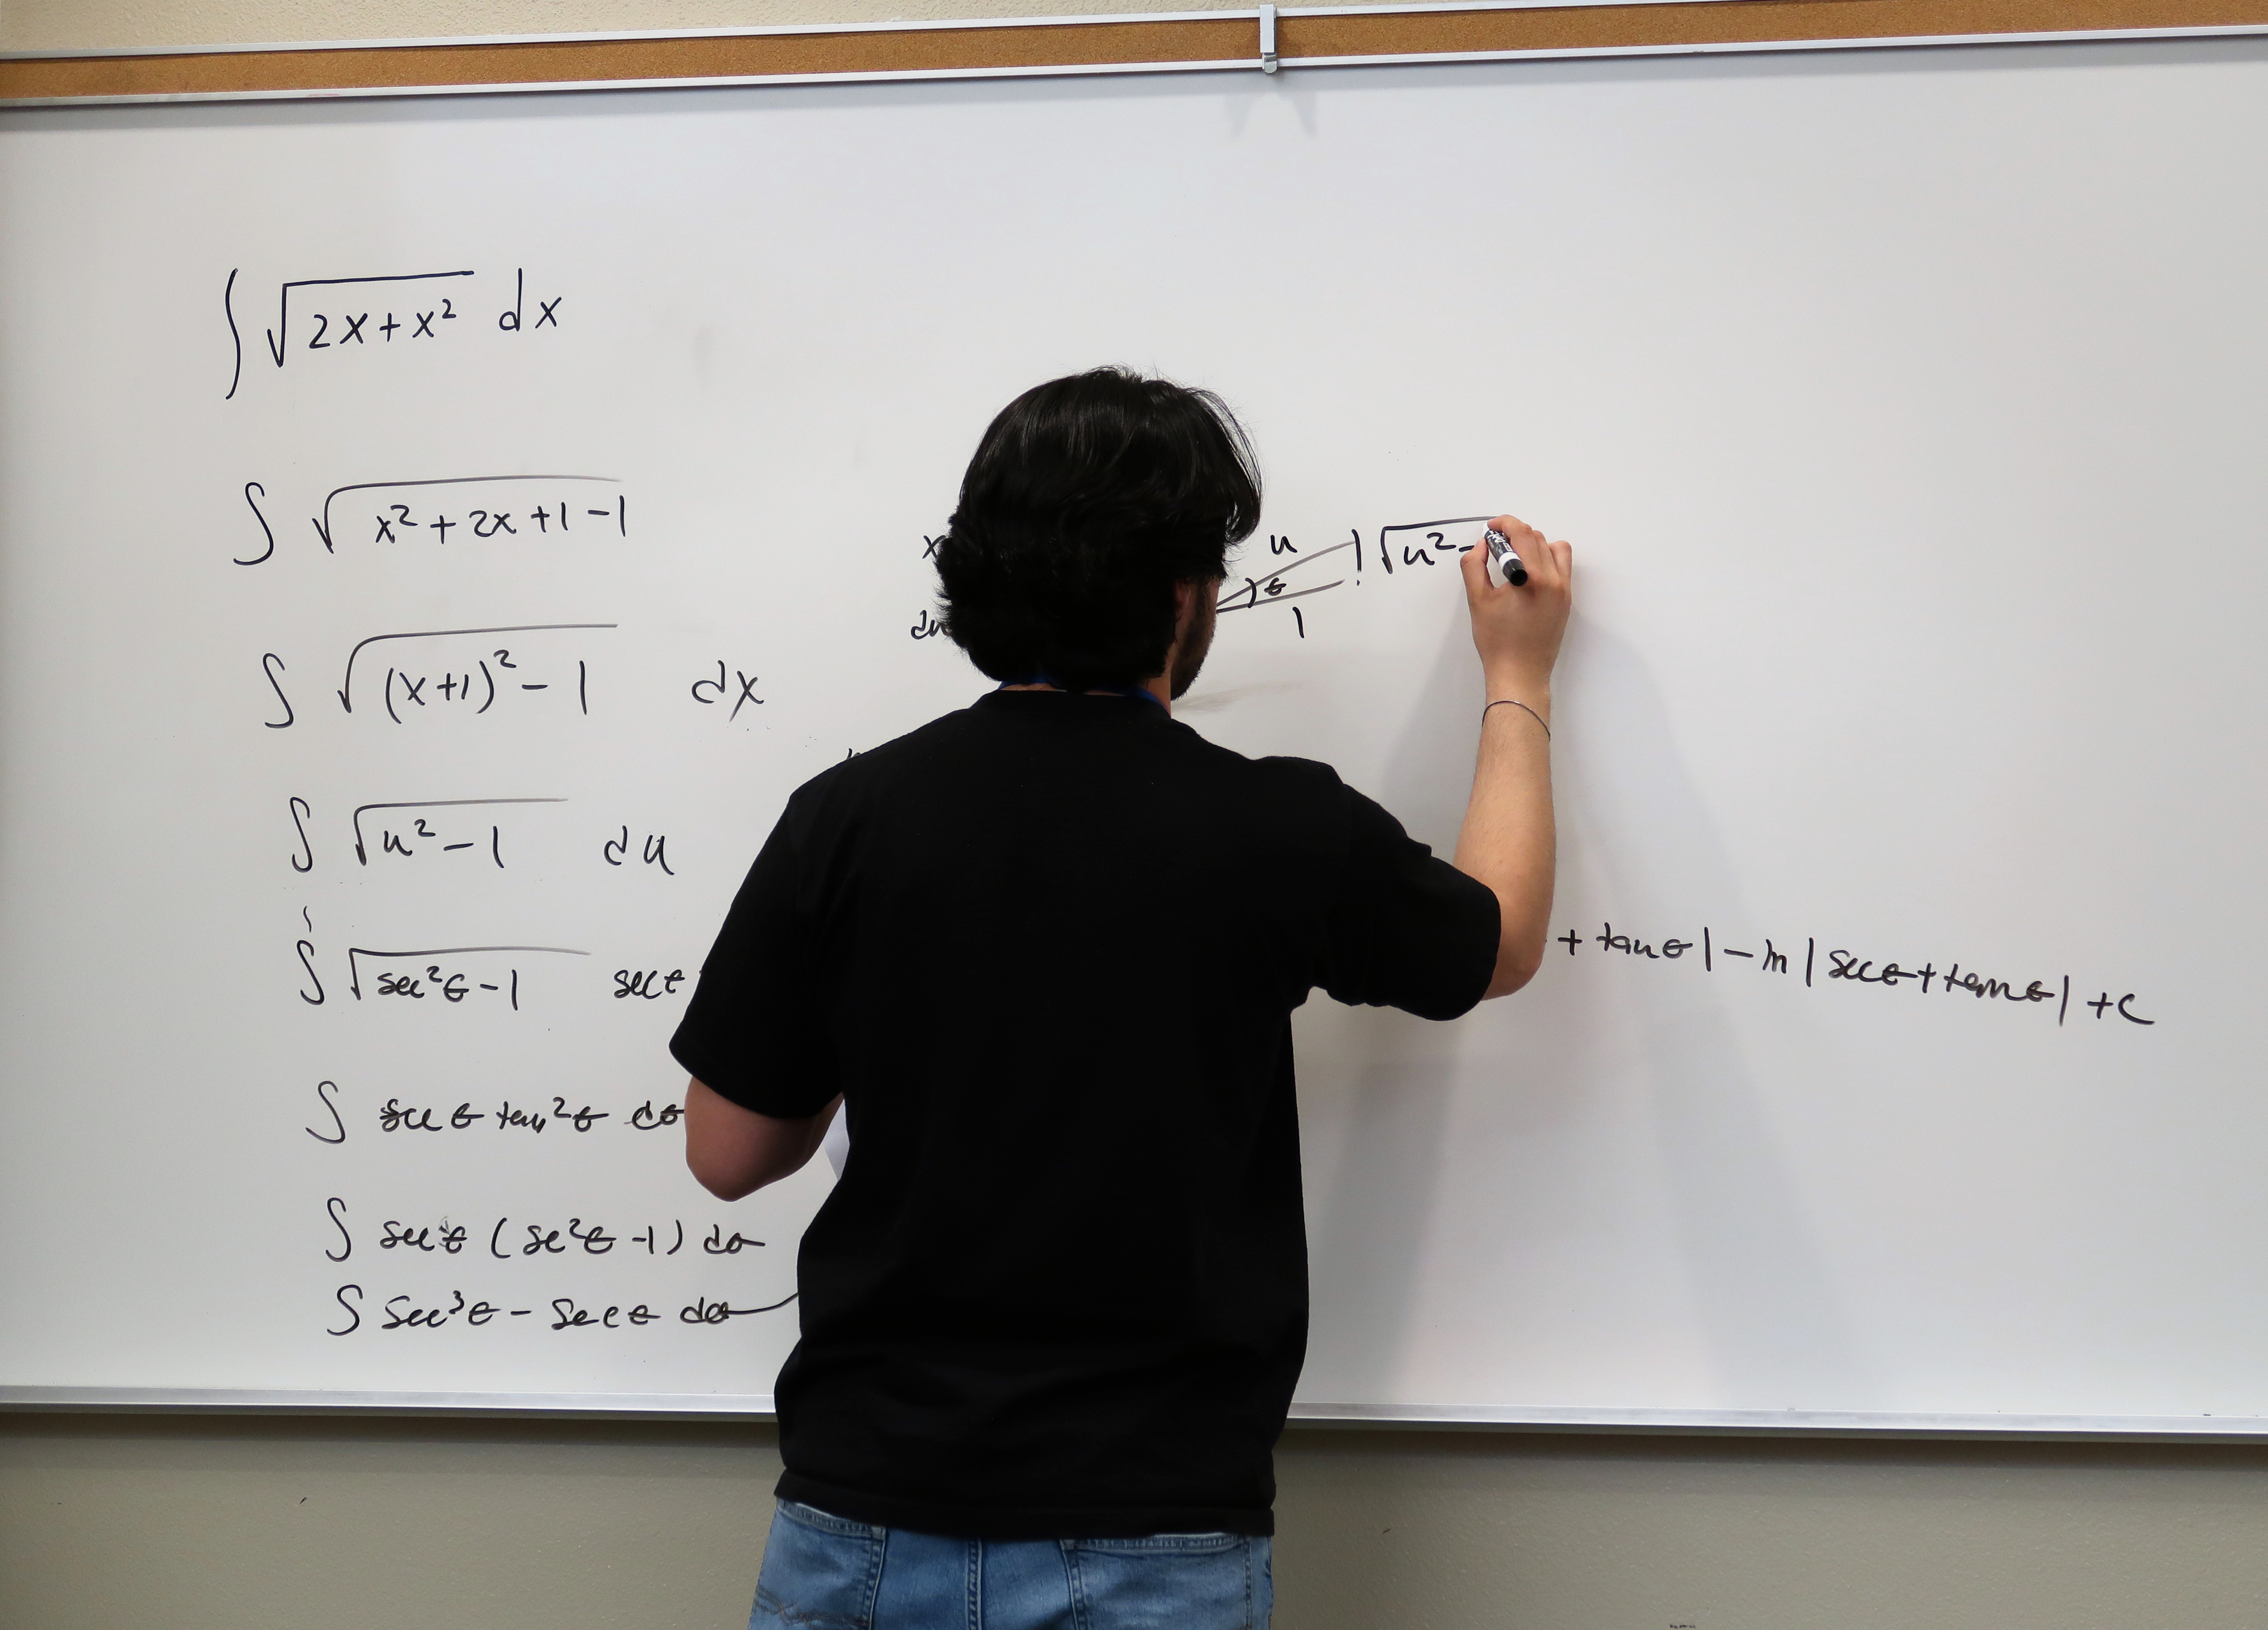 ∫ √(2x+x²) dx
∫ √(x²+2x+1-1)
∫ √((x+1)²-1) dx
∫ √(u²-1) du
∫ √(sec²θ-1) secθ
∫ secθ tan²θ dθ
∫ secθ (sec²θ-1) dθ
∫ sec³θ - secθ dθ
x
du
u
θ
1
√u²-
+ tanθ| - ln|secθ+tanθ| +C